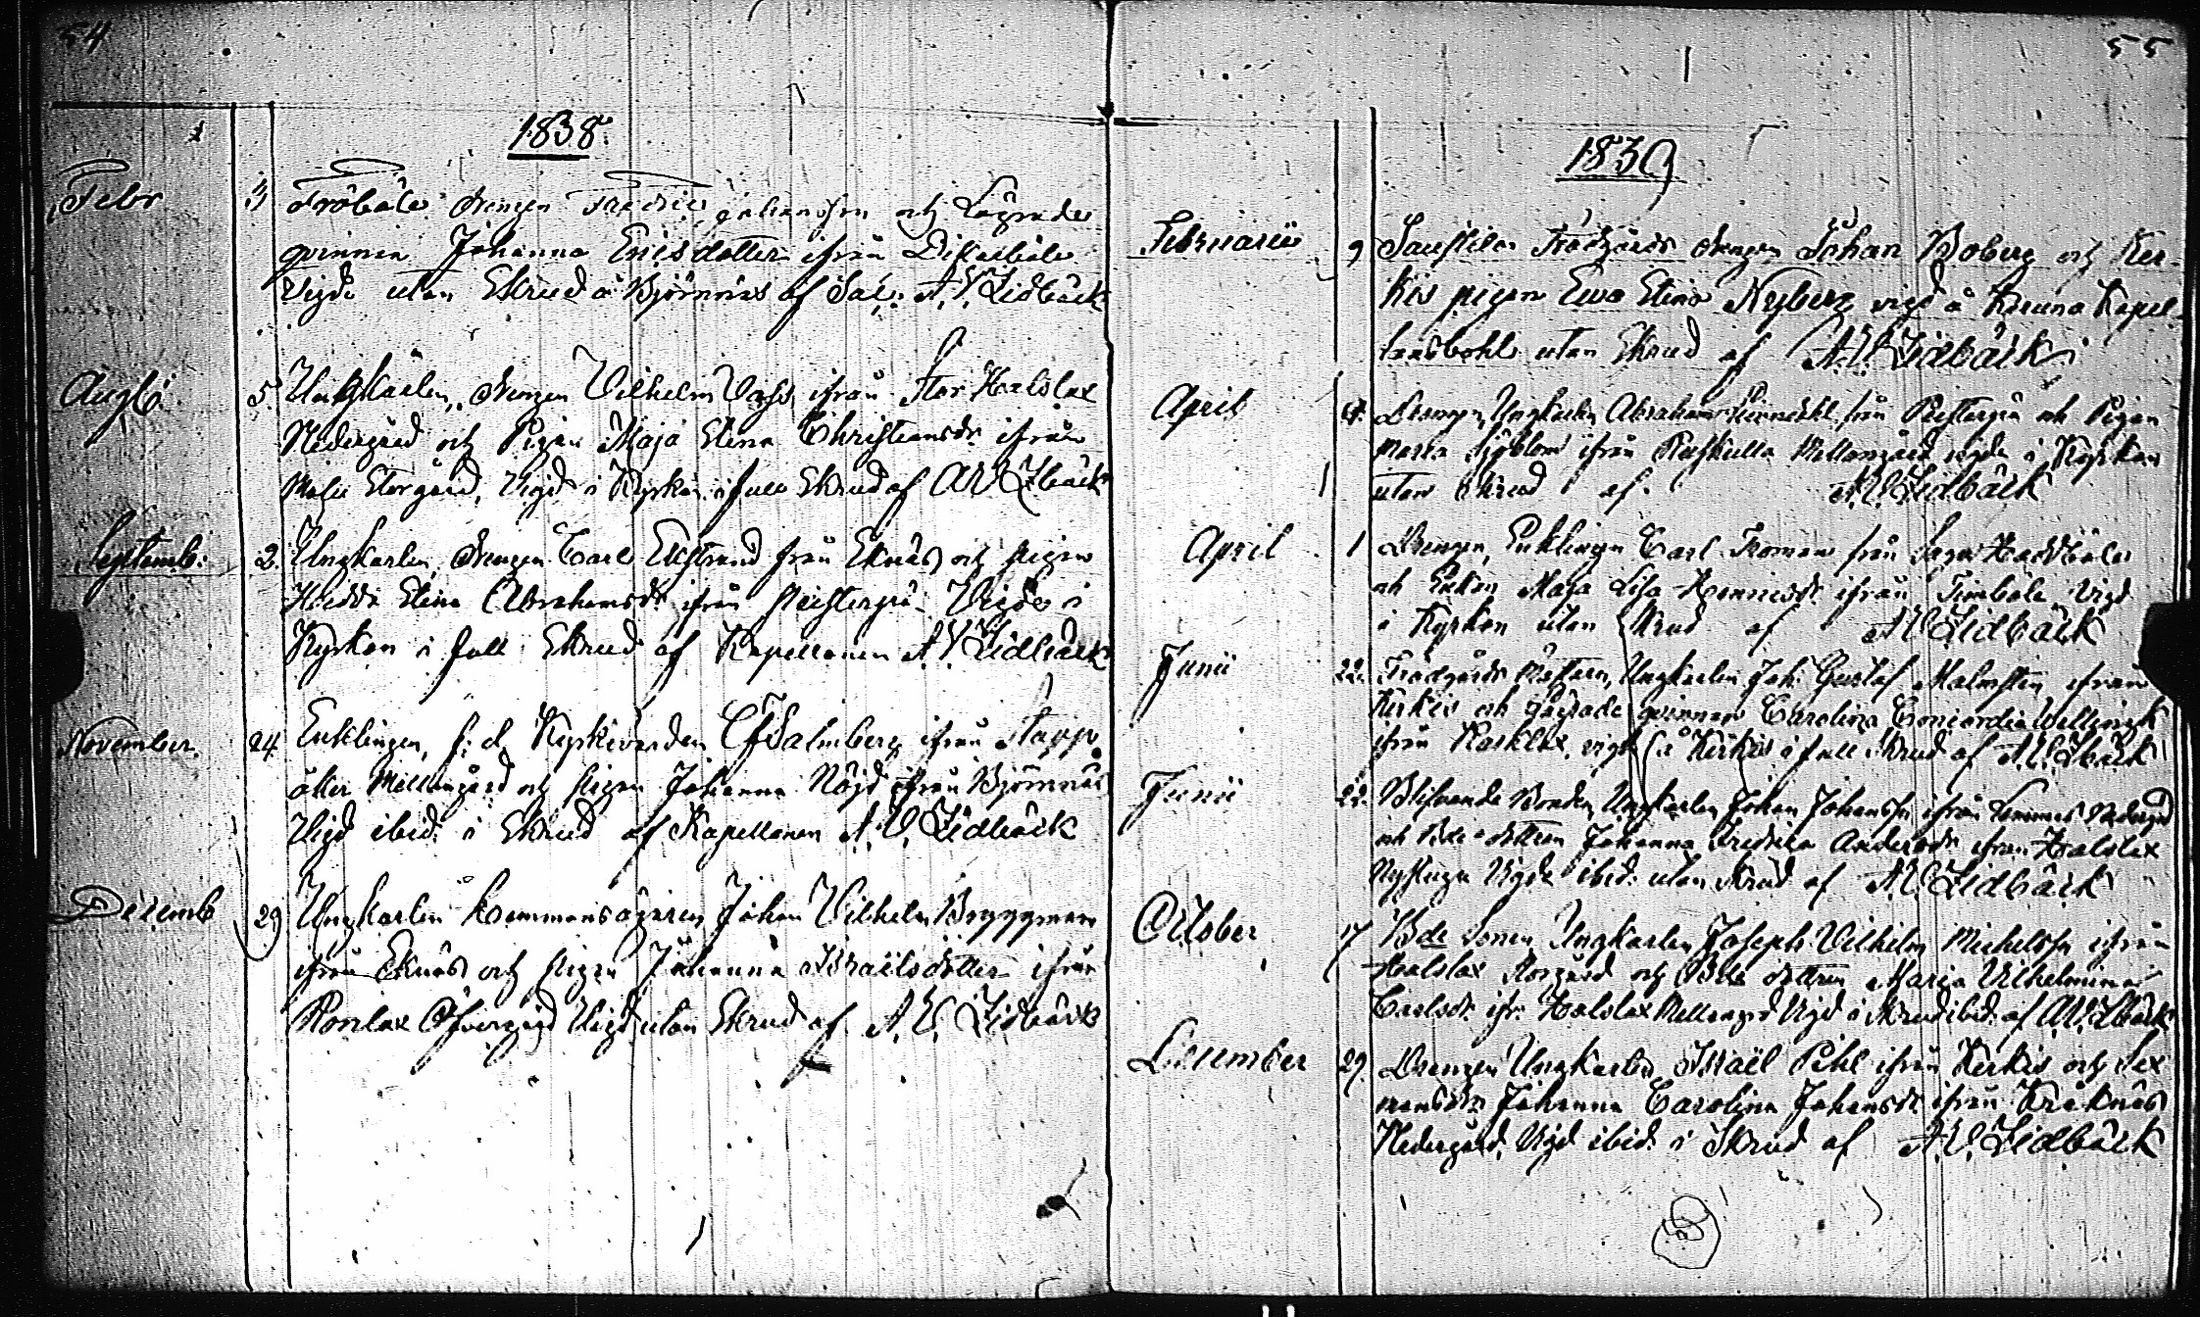 54
1838.
Febr 4 Fröböle drengen Fredric Johansson och Lägrade
qvinnan Johanna Ericsdotter ifrån Dikarböle
Vigde utan Skrud å Björnnäs af Sac: A. V. Lidbäck
Aug. 5 Ungkarlen, drengen Vilhelm ifrån Stor Halslax
Nedergård och Pigan Maja Stina Christiansdr ifrån
Storgård, Vigd i Kyrkan i full Skrud af AV Lbäck
Septemb: 2. Ungkarlen, drengen Carl Ekstrand från Eknäs och pigan
Hedda Stina Abrahamsdr ifrån Vigde i
Kyrkan i full Skrud af Kapellanen A. V. Lidbäck
November. 24 Enklingen, f: d. Kyrkivärden Salmberg ifrån
Mellangård och pigan Johanna Nöjd ifrån Björnnäs
Vigd ibid: i Skrud af Kapellanen A. V. Lidbäck
Decemb 29 Ungkarlen Hemmansägaren Johan Vilhelm Bryggman
ifrån Eknäs och pigan Johanna Israelsdotter ifrån
Öfvergård Vigd utan Skrud af A. V. Lidbäck
55
1839
Februarii 9 Trädgårds drengen Johan Boberg och Ker-
kis pigan Ewa Stina Nyberg vigd å Kapel-
lansbohle utan Skrud af A. V. Lidbäck
April Drengen, Ungkarlen Abraham från och Pigan
Maria Sjöblom ifrån Mellangård vigde i Kyrkan
utan Skrud af A. V. Lidbäck
April 1 Drengen, Enklingen Carl Froman från
och Enkan Maja Lisa ifrån Timböle Vigd
i Kyrkan utan Skrud af A V Lidbäck
Junii 22. Trädgårds Mästaren, Ungkarlen Joh: Gustaf Malmsten ifrån
Kerkis och Lägrade qvinnan Carolina Concordia
ifrån vigde å Kerkis i full Skrud af A. V. Lbäck
Junii 22. Blifvande Bonden Ungkarlen Johan Johansson ifrån Nedergd
och Bde dottren Johanna Fredrika Andersdr ifrån Halslax
Nystugu Vigde ibid: utan Skrud af A. V. Lidbäck
October 17 Bde Sonen Ungkarlen Joseph Vilhelm Michelsson ifrån
Halslax Storgård och Bde dottren Maria Vilhelmina
Carlsdr ifr. Halslax Mellangrd Vigd i Skrud ibid: af AV. Lbäck
December 29. Drengen Ungkarlen Israël Pihl ifrån Kerkis och Sex
mansdr Johanna Carolina Johansdr ifrån Kräknäs
Nedergård, Vigd ibid: i Skrud af A. V. Lidbäck